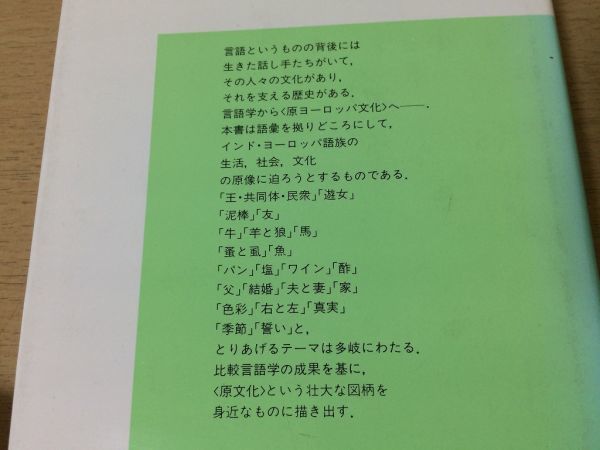 言語というものの背後には
生きた話し手たちがいて，
その人々の文化があり，
それを支える歴史がある．
言語学から〈原ヨーロッパ文化〉へ――．
本書は語彙を拠りどころにして，
インド・ヨーロッパ語族の
生活，社会，文化
の原像に迫ろうとするものである．
「王・共同体・民衆」「遊女」
「泥棒」「友」
「牛」「羊と狼」「馬」
「蚤と虱」「魚」
「パン」「塩」「ワイン」「酢」
「父」「結婚」「夫と妻」「家」
「色彩」「右と左」「真実」
「季節」「誓い」と，
とりあげるテーマは多岐にわたる．
比較言語学の成果を基に，
〈原文化〉という壮大な図柄を
身近なものに描き出す．